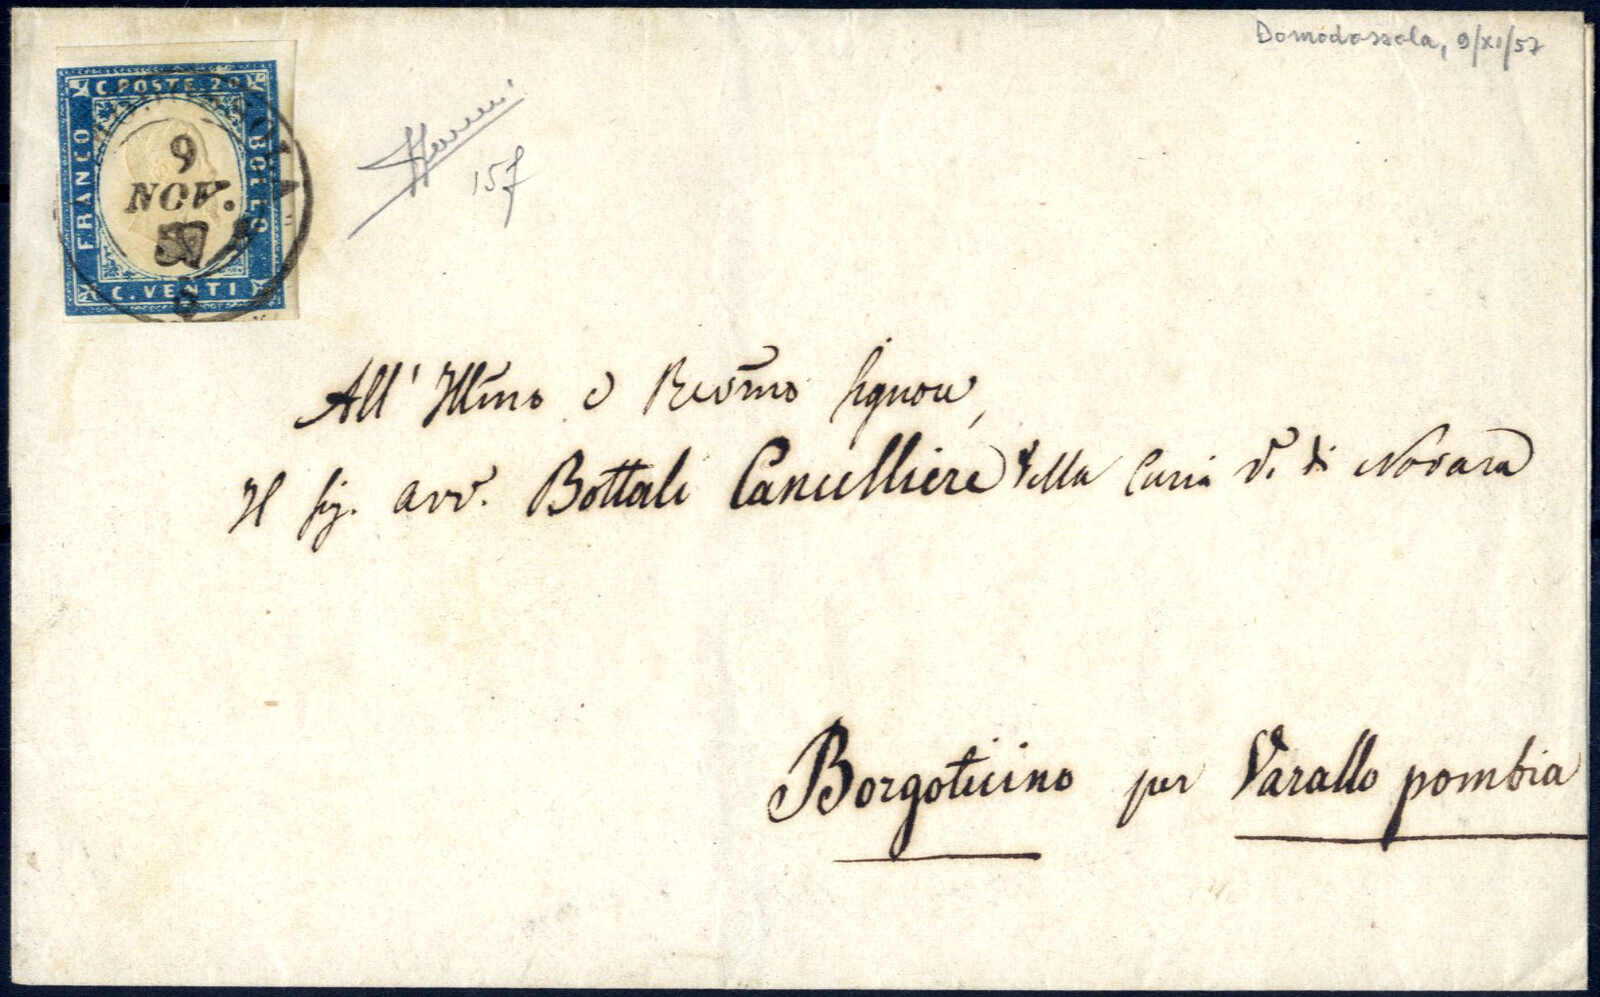 Domodossola, 9/XI/57
C. POSTE. 20
FRANCO
BOLLO
C. VENTI
9
NOV.
57
6
15f
All' Illmo e Revmo Signore,
Il Sig. avv. Bottali Cancelliere della Curia V. di Novara
Borgoticino per Varallo pombia